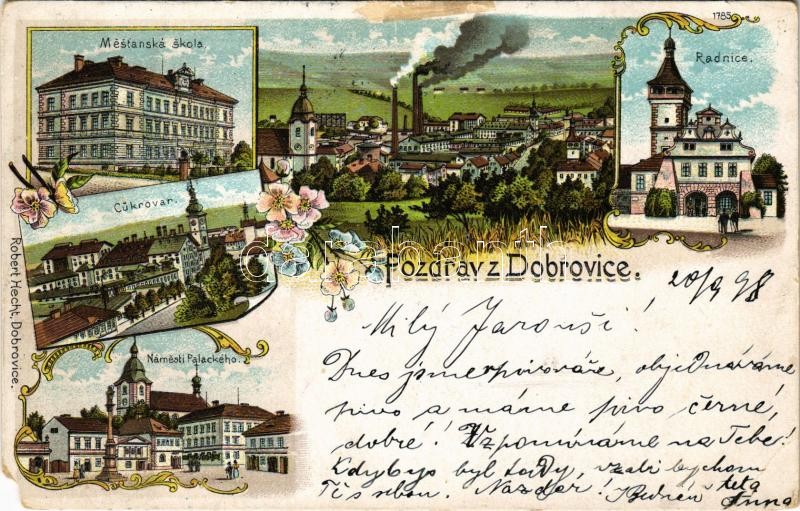 1785
Měšťanská škola.
Radnice.
Cůkrovar.
Pozdrav z Dobrovice.
Náměstí Palackého.
Robert Hecht, Dobrovice.
darabanth
20/9 98
Milý Jarouši!
Dnes jsme v pivováře, objednáváme
pivo a máme pivo černé,
dobré! Vzpomínáme na Tebe!
Kdybys byl tady, vzali bychom
Tě s sebou. Nazdar! teta
Anna